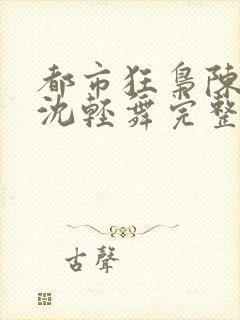 都市狂梟陳
沈輕舞完整
古聲